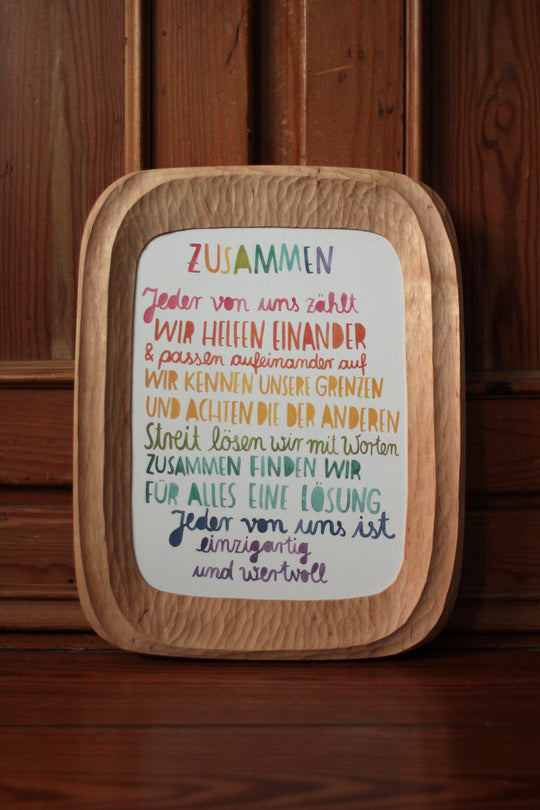 ZUSAMMEN
Jeder von uns zählt
WIR HELFEN EINANDER
& passen aufeinander auf
WIR KENNEN UNSERE GRENZEN
UND ACHTEN DIE DER ANDEREN
Streit lösen wir mit Worten
ZUSAMMEN FINDEN WIR
FÜR ALLES EINE LÖSUNG
Jeder von uns ist
einzigartig
und wertvoll